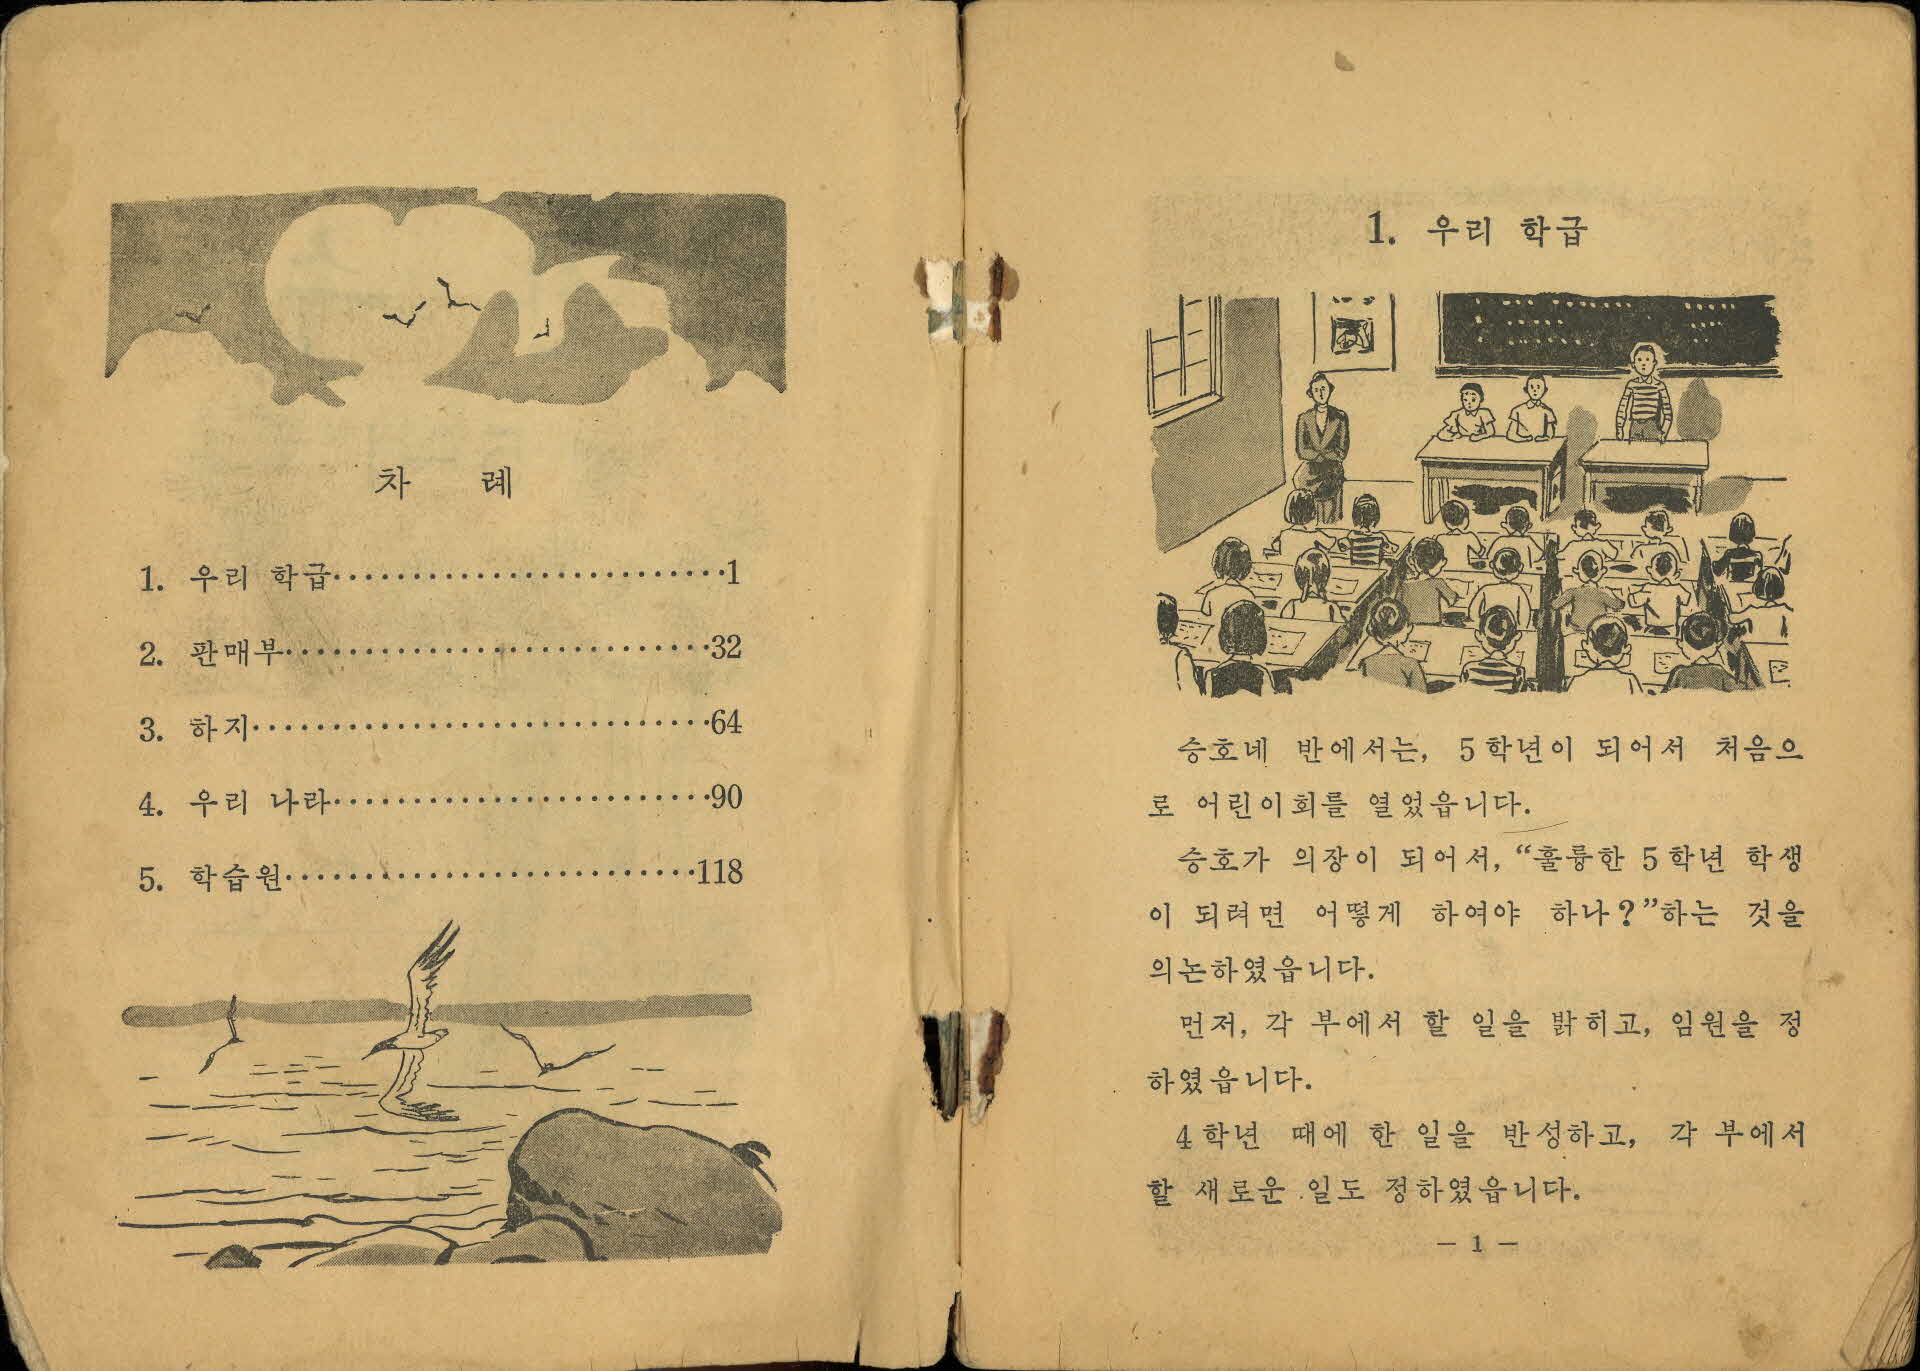 차 례
1. 우리 학급···························1
2. 판매부···························32
3. 하지·····························64
4. 우리 나라························90
5. 학습원··························118
1. 우리 학급
승호네 반에서는, 5학년이 되어서 처음으
로 어린이회를 열었읍니다.
승호가 의장이 되어서, “훌륭한 5학년 학생
이 되려면 어떻게 하여야 하나?”하는 것을
의논하였읍니다.
먼저, 각 부에서 할 일을 밝히고, 임원을 정
하였읍니다.
4학년 때에 한 일을 반성하고, 각 부에서
할 새로운 일도 정하였읍니다.
— 1 —